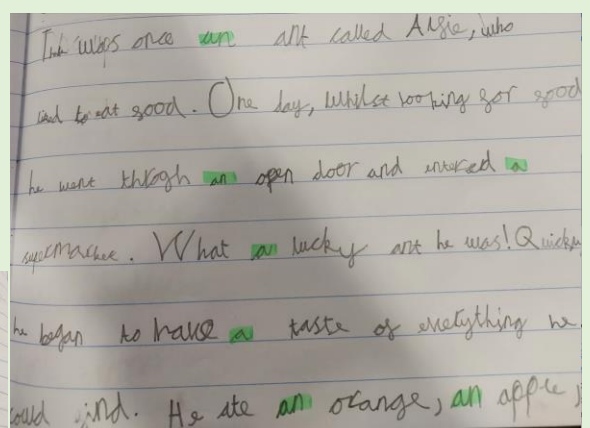 was once an ant called Algie, who
to eat good. One day, whilst looking for good
he went throgh an open door and entered a
What a lucky ant he was! Quickly
he began to have a taste of everything he
could ind. He ate an orange, an apple,